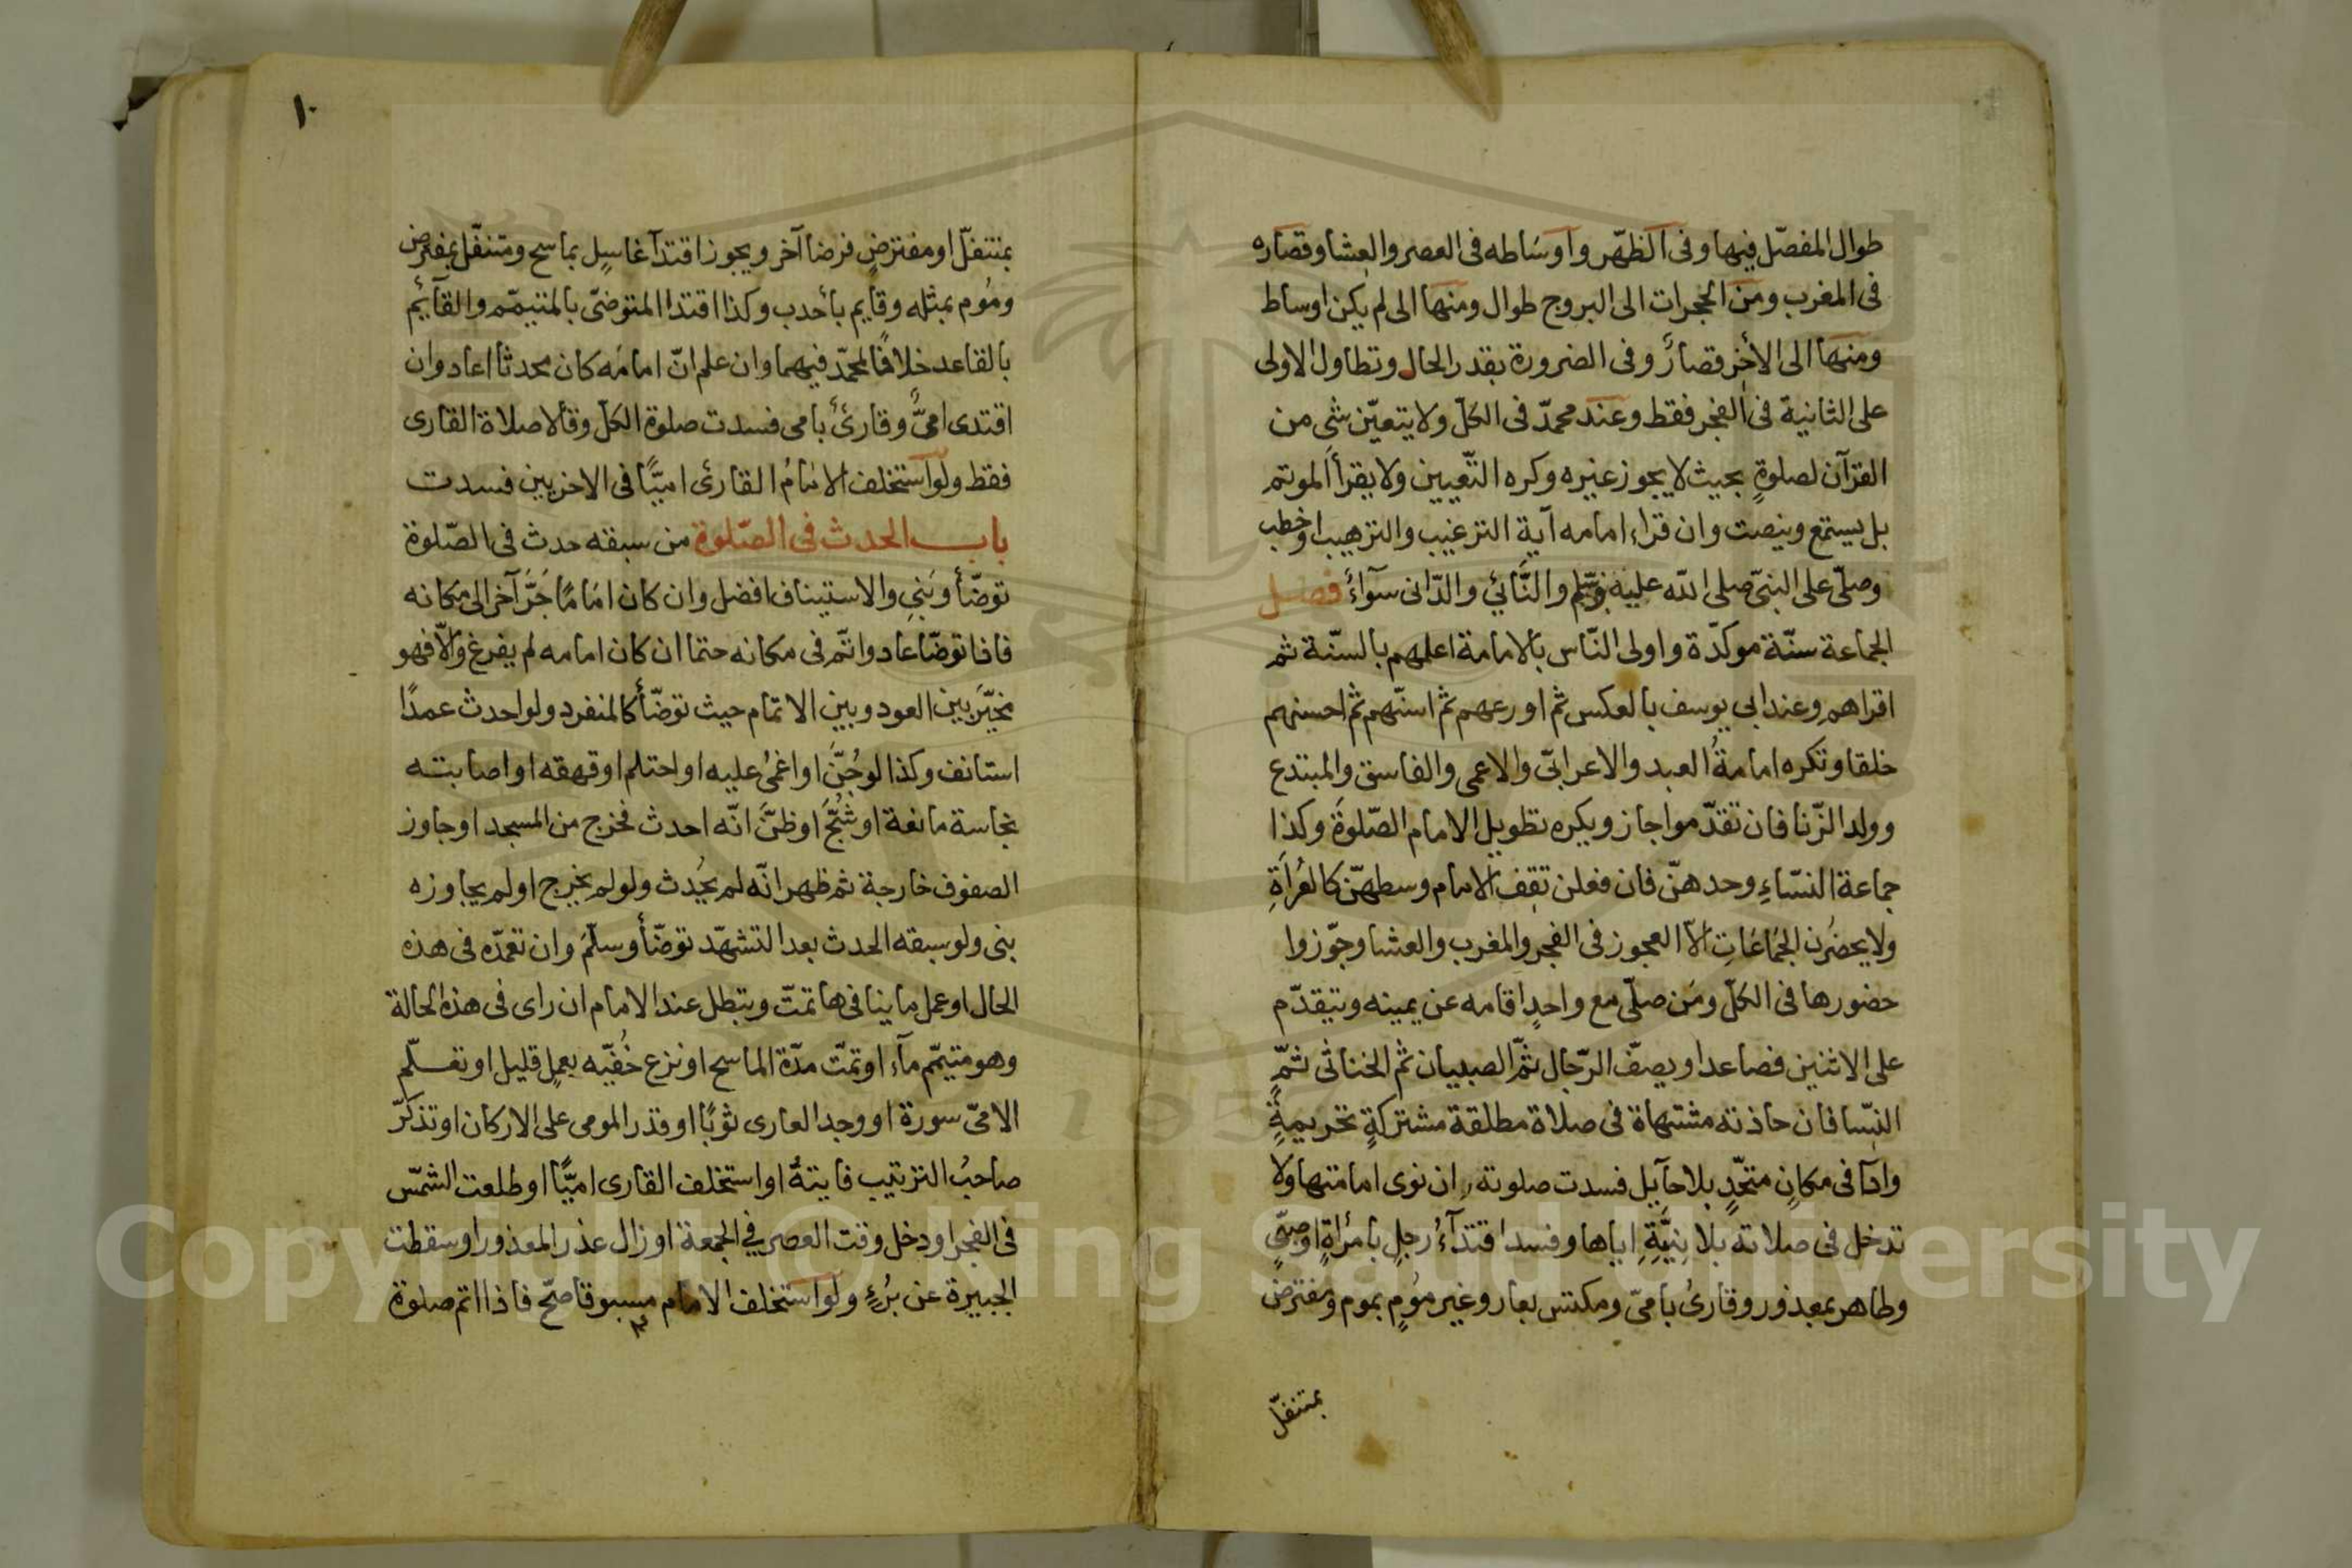 طوال المفصّل فيها وفى الظهر واوساطه فى العصر والعشا وقصاره
فى المغرب ومن الحجرات الى البروج طوال ومنها الى لم يكن اوساط
ومنها الى الأخر قصارٌ وفى الضرورة بقدر الحال وتطاول الاولى
على الثانية فى الفجر فقط وعند محمدّ فى الكلّ ولا يتعيّن شى من
القرآن لصلوةٍ بحيث لا يجوز غيره وكره التّعيين ولا يقرأ الموتم
بل يستمع وينصت وان قراء امامه آية الترغيب والترهيب او خطب
وصلّى على النبىّ صلى الله عليه وسّلم والنَّائي والدّانى سوآءٌ فصل
الجماعة سنّة موكدّة واولى النّاس بالامامة اعلمهم بالسنّة ثم
اقراهم وعند ابي يوسف بالعكس ثم اورعهم ثم اسنّهم ثم احسنهم
خلقا وتكره امامةُ العبد والاعرابىّ والاعمى والفاسق والمبتدع
وولد الزّنا فان تقدّموا جاز ويكره تطويل الامام الصّلوةَ وكذا
جماعة النسّاءِ وحدهنّ فان فعلن تقف الامام وسطهنّ كالعُراةِ
ولا يحضُرن الجمَاعَاتِ الاّ العجوز فى الفجر والمغرب والعشا وجوّزوا
حضورها فى الكلّ ومَن صلّى مع واحدٍ اقامه عن يمينه ويتقدّم
على الاثنين فصاعدا ويصفّ الرّجال ثمّ الصبيان ثم الخناثى ثمّ
النّسا فان حاذته مشتهاة فى صلاة مطلقة مشتركةٍ تحريمةً
وادآ فى مكانٍ متحّدٍ بلا حآيل فسدت صلوته ان نوى امامتها ولا
تدخل فى صلاته بلا نِيَّةِ اياها وفسد اقتدآءُ رجلٍ بامرأةٍ او صبىٍّ
وطاهر بمعذور وقارئ بامىّ ومكتس بعار وغير مُومٍ بموم ومفترض
بمتنفلّ
١٠
بمتنفلّ او مفترضٍ فرضا آخر ويجوز اقتدآ غاسلٍ بماسح ومتنفّل بمفترض
ومُوم بمثله وقايم بأحدب وكذا اقتدا المتوضىّ بالمتيمّم والقآئيم
بالقاعد خلافًا لمحمّد فيهما وان علم انّ امامَه كان محدثا اعاد وان
اقتدى امىٌّ وقارئٌ بامى فسدت صلوة الكلّ وقالا صلاة القارى
فقط ولو استخلف الامامُ القارئ اميًّا فى الاخريين فسدت
باب الحدث فى الصّلوة من سبقه حدث فى الصّلوة
توضّأ وبَنى والاستيناف افضل وان كان امامًا جَرَّ آخر الى مكانه
فاذا توضّا عاد واتّم فى مكانه حتما ان كان امامه لم يفرغ والاّ فهو
مخيّر بين العود وبين الاتمام حيث توضّأ كالمنفرد ولو احدث عمدًا
استانف وكذا لو جُنَّ او اغمىُ عليه او احتلم او قهقه او اصابته
نجاسة مانعة او شُجَّ او ظنَّ انّه احدث فخرج من المسجد او جاوز
الصفوف خارجة ثم ظهر انّه لم يحُدث ولو لم يخرج او لم يجاوزه
بنى ولو سبقه الحدث بعد التشهّد توضّأ وسلّمَ وان تعمدّه فى هذه
الحال او عمل ما ينافى ها تمّت وتبطل عند الامام ان راى فى هذه الحالة
وهو متيمّم مآء او تمّت مدّة الماسح او نزع خُفيّه بعملٍ قليل او تعلّم
الامىّ سورة او وجد العارى ثوبًا او قدر المومى على الاركان او تذكرّ
صاحبُ الترتيب فايتةً او استخلف القارى اميًّا او طلعت الشمّس
فى الفجر او دخل وقت العصر في الجمعة او زال عذر المعذور او سقطت
الجبيرة عن بُرُءٍ ولو استخلف الامام مسبوقا صحّ فاذا اتم صلوة
Copyright © King Saud University
1957